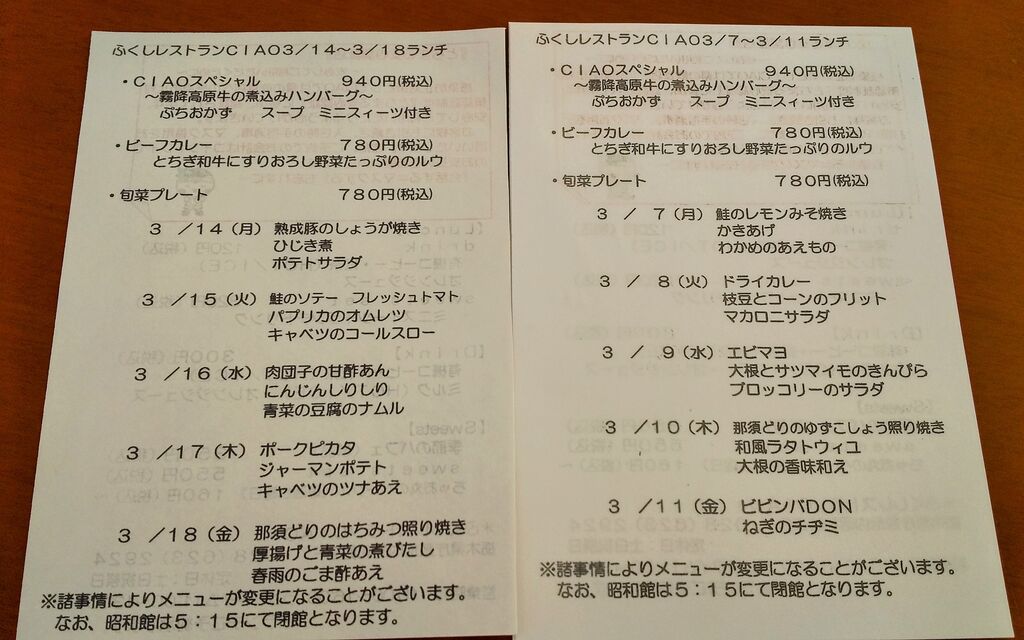 ふくしレストランCIAO3/14～3/18ランチ
・CIAOスペシャル 940円(税込)
～霧降高原牛の煮込みハンバーグ～
ぷちおかず スープ ミニスィーツ付き
・ビーフカレー 780円(税込)
とちぎ和牛にすりおろし野菜たっぷりのルウ
・旬菜プレート 780円(税込)
3 /14(月) 熟成豚のしょうが焼き
ひじき煮
ポテトサラダ
3 /15(火) 鮭のソテー フレッシュトマト
パプリカのオムレツ
キャベツのコールスロー
3 /16(水) 肉団子の甘酢あん
にんじんしりしり
青菜の豆腐のナムル
3 /17(木) ポークピカタ
ジャーマンポテト
キャベツのツナあえ
3 /18(金) 那須どりのはちみつ照り焼き
厚揚げと青菜の煮びたし
春雨のごま酢あえ
※諸事情によりメニューが変更になることがございます。
なお、昭和館は5:15にて閉館となります。
ふくしレストランCIAO3/7～3/11ランチ
・CIAOスペシャル 940円(税込)
～霧降高原牛の煮込みハンバーグ～
ぷちおかず スープ ミニスィーツ付き
・ビーフカレー 780円(税込)
とちぎ和牛にすりおろし野菜たっぷりのルウ
・旬菜プレート 780円(税込)
3 / 7(月) 鮭のレモンみそ焼き
かきあげ
わかめのあえもの
3 / 8(火) ドライカレー
枝豆とコーンのフリット
マカロニサラダ
3 / 9(水) エビマヨ
大根とサツマイモのきんぴら
ブロッコリーのサラダ
3 /10(木) 那須どりのゆずこしょう照り焼き
和風ラタトウィユ
大根の香味和え
3 /11(金) ビビンバDON
ねぎのチヂミ
※諸事情によりメニューが変更になることがございます。
なお、昭和館は5:15にて閉館となります。